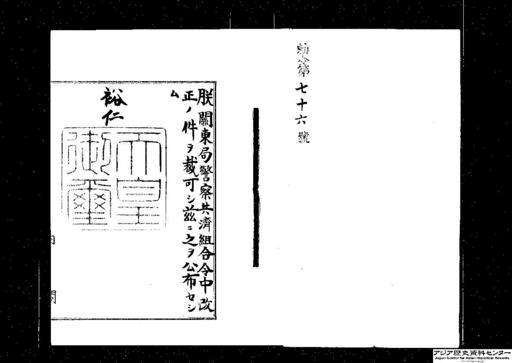 勅令第七十六號
朕關東局警察共濟組合令中改
正ノ件ヲ裁可シ茲ニ之ヲ公布セシ
ム
裕仁
天皇御璽
内閣
アジア歴史資料センター
Japan Center for Asian Historical Records